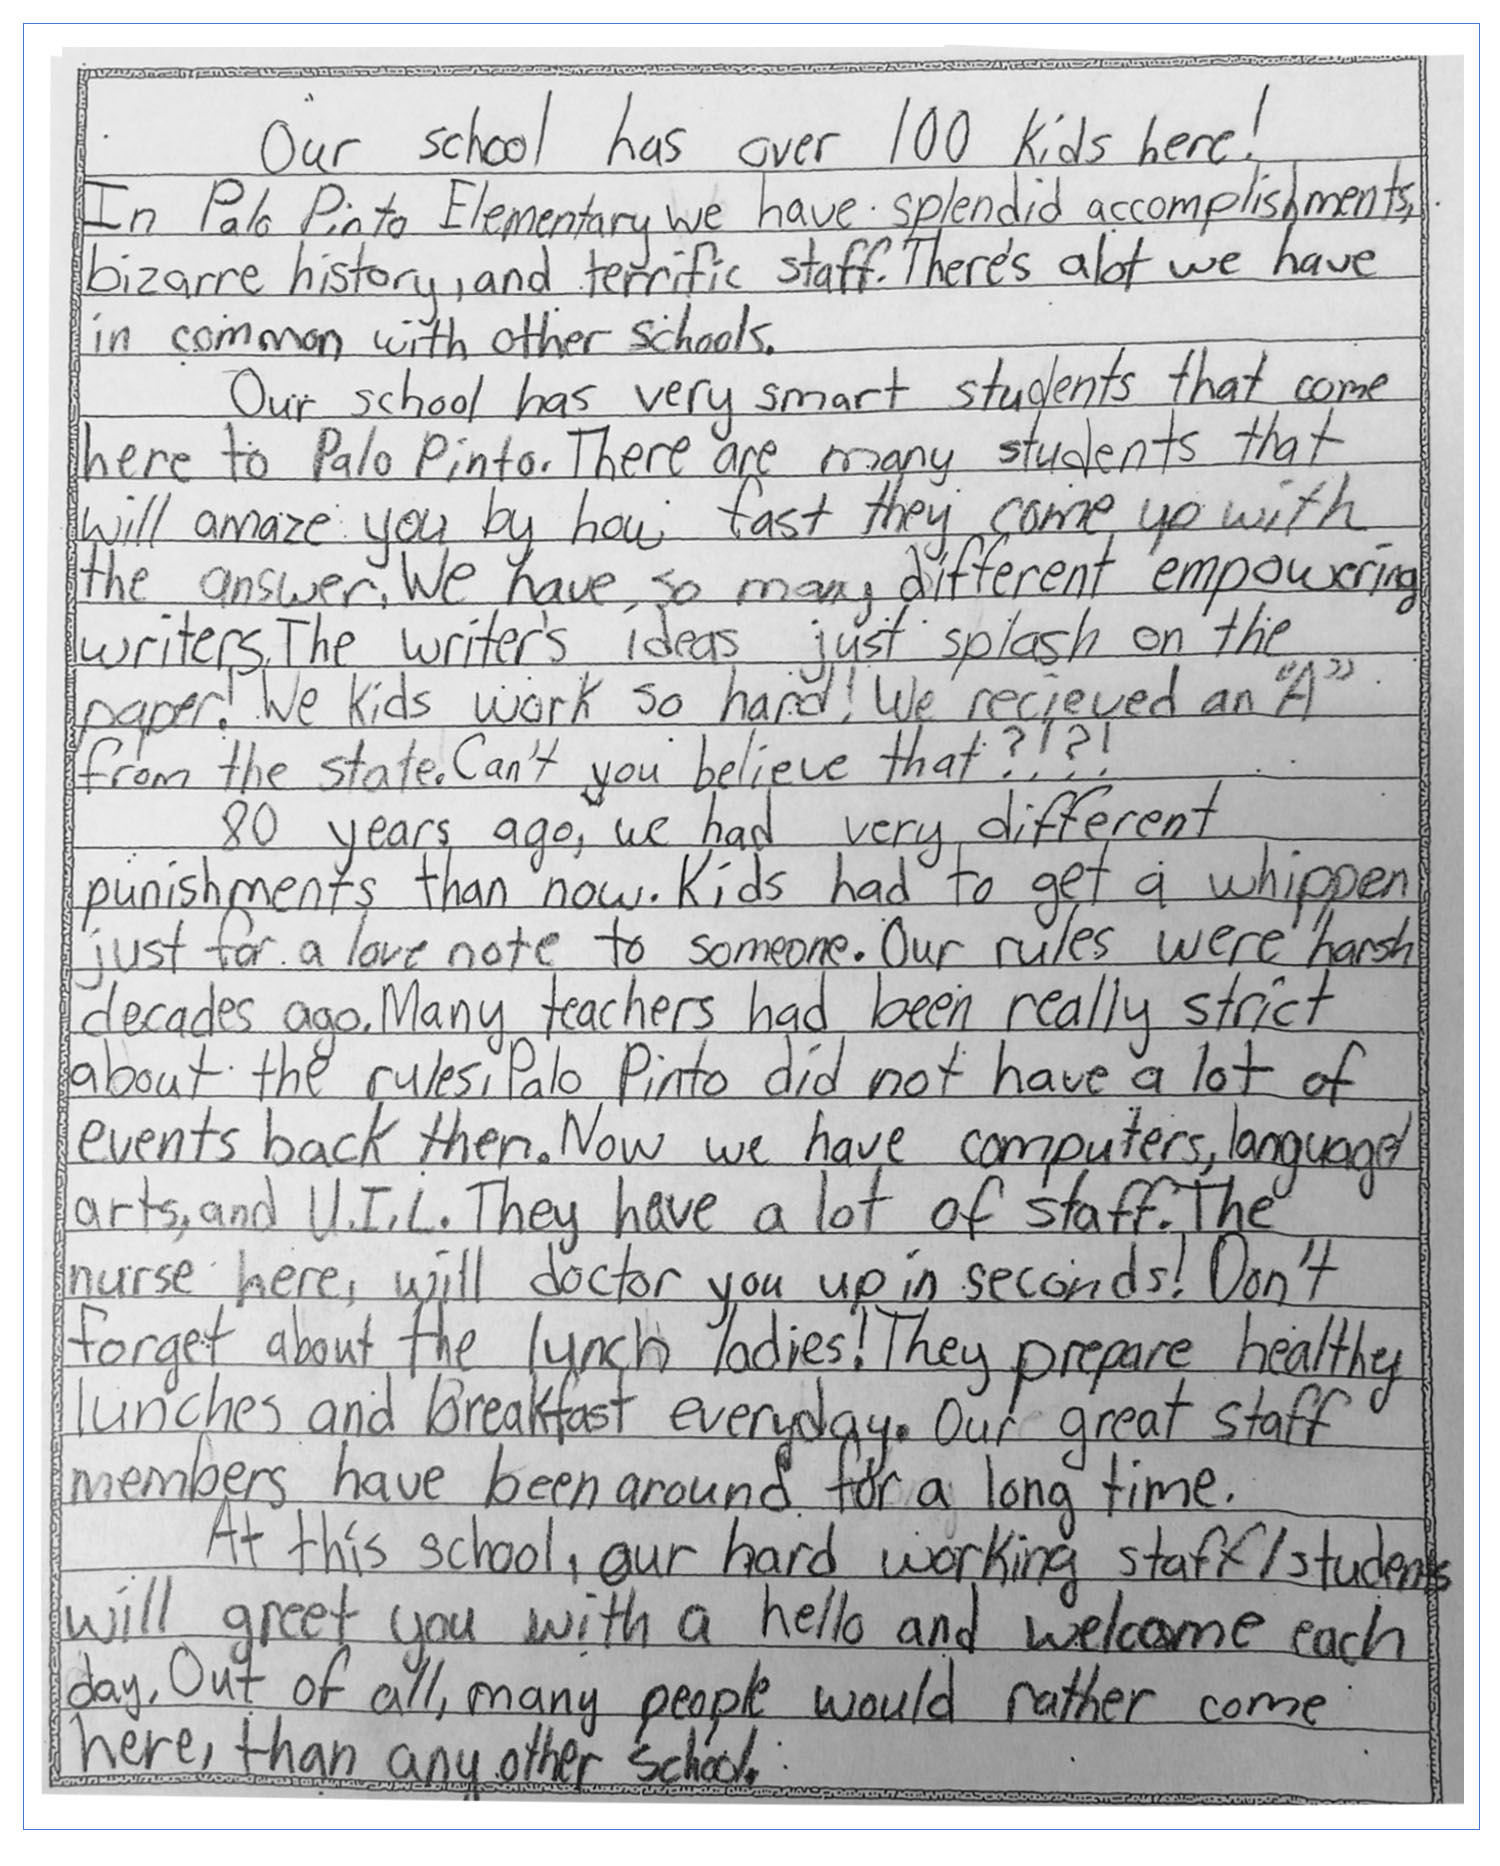 Our school has over 100 Kids here!
In Palo Pinto Elementary we have splendid accomplishments,
bizarre history, and terrific staff. There's alot we have
in common with other schools.
Our school has very smart students that come
here to Palo Pinto. There are many students that
will amaze you by how fast they come up with
the answer. We have so many different empowering
writers. The writer's ideas just splash on the
paper! We Kids work so hard! We recieved an "A"
from the state. Can't you believe that?!?!
80 years ago, we had very different
punishments than now. Kids had to get a whippen
just for a love note to someone. Our rules were harsh
decades ago. Many teachers had been really strict
about the rules. Palo Pinto did not have a lot of
events back then. Now we have computers, language
arts, and U.I.L. They have a lot of staff. The
nurse here, will doctor you up in seconds! Don't
forget about the lunch ladies! They prepare healthy
lunches and breakfast everyday. Our great staff
members have been around for a long time.
At this school, our hard working staff/students
will greet you with a hello and welcome each
day. Out of all, many people would rather come
here, than any other school.